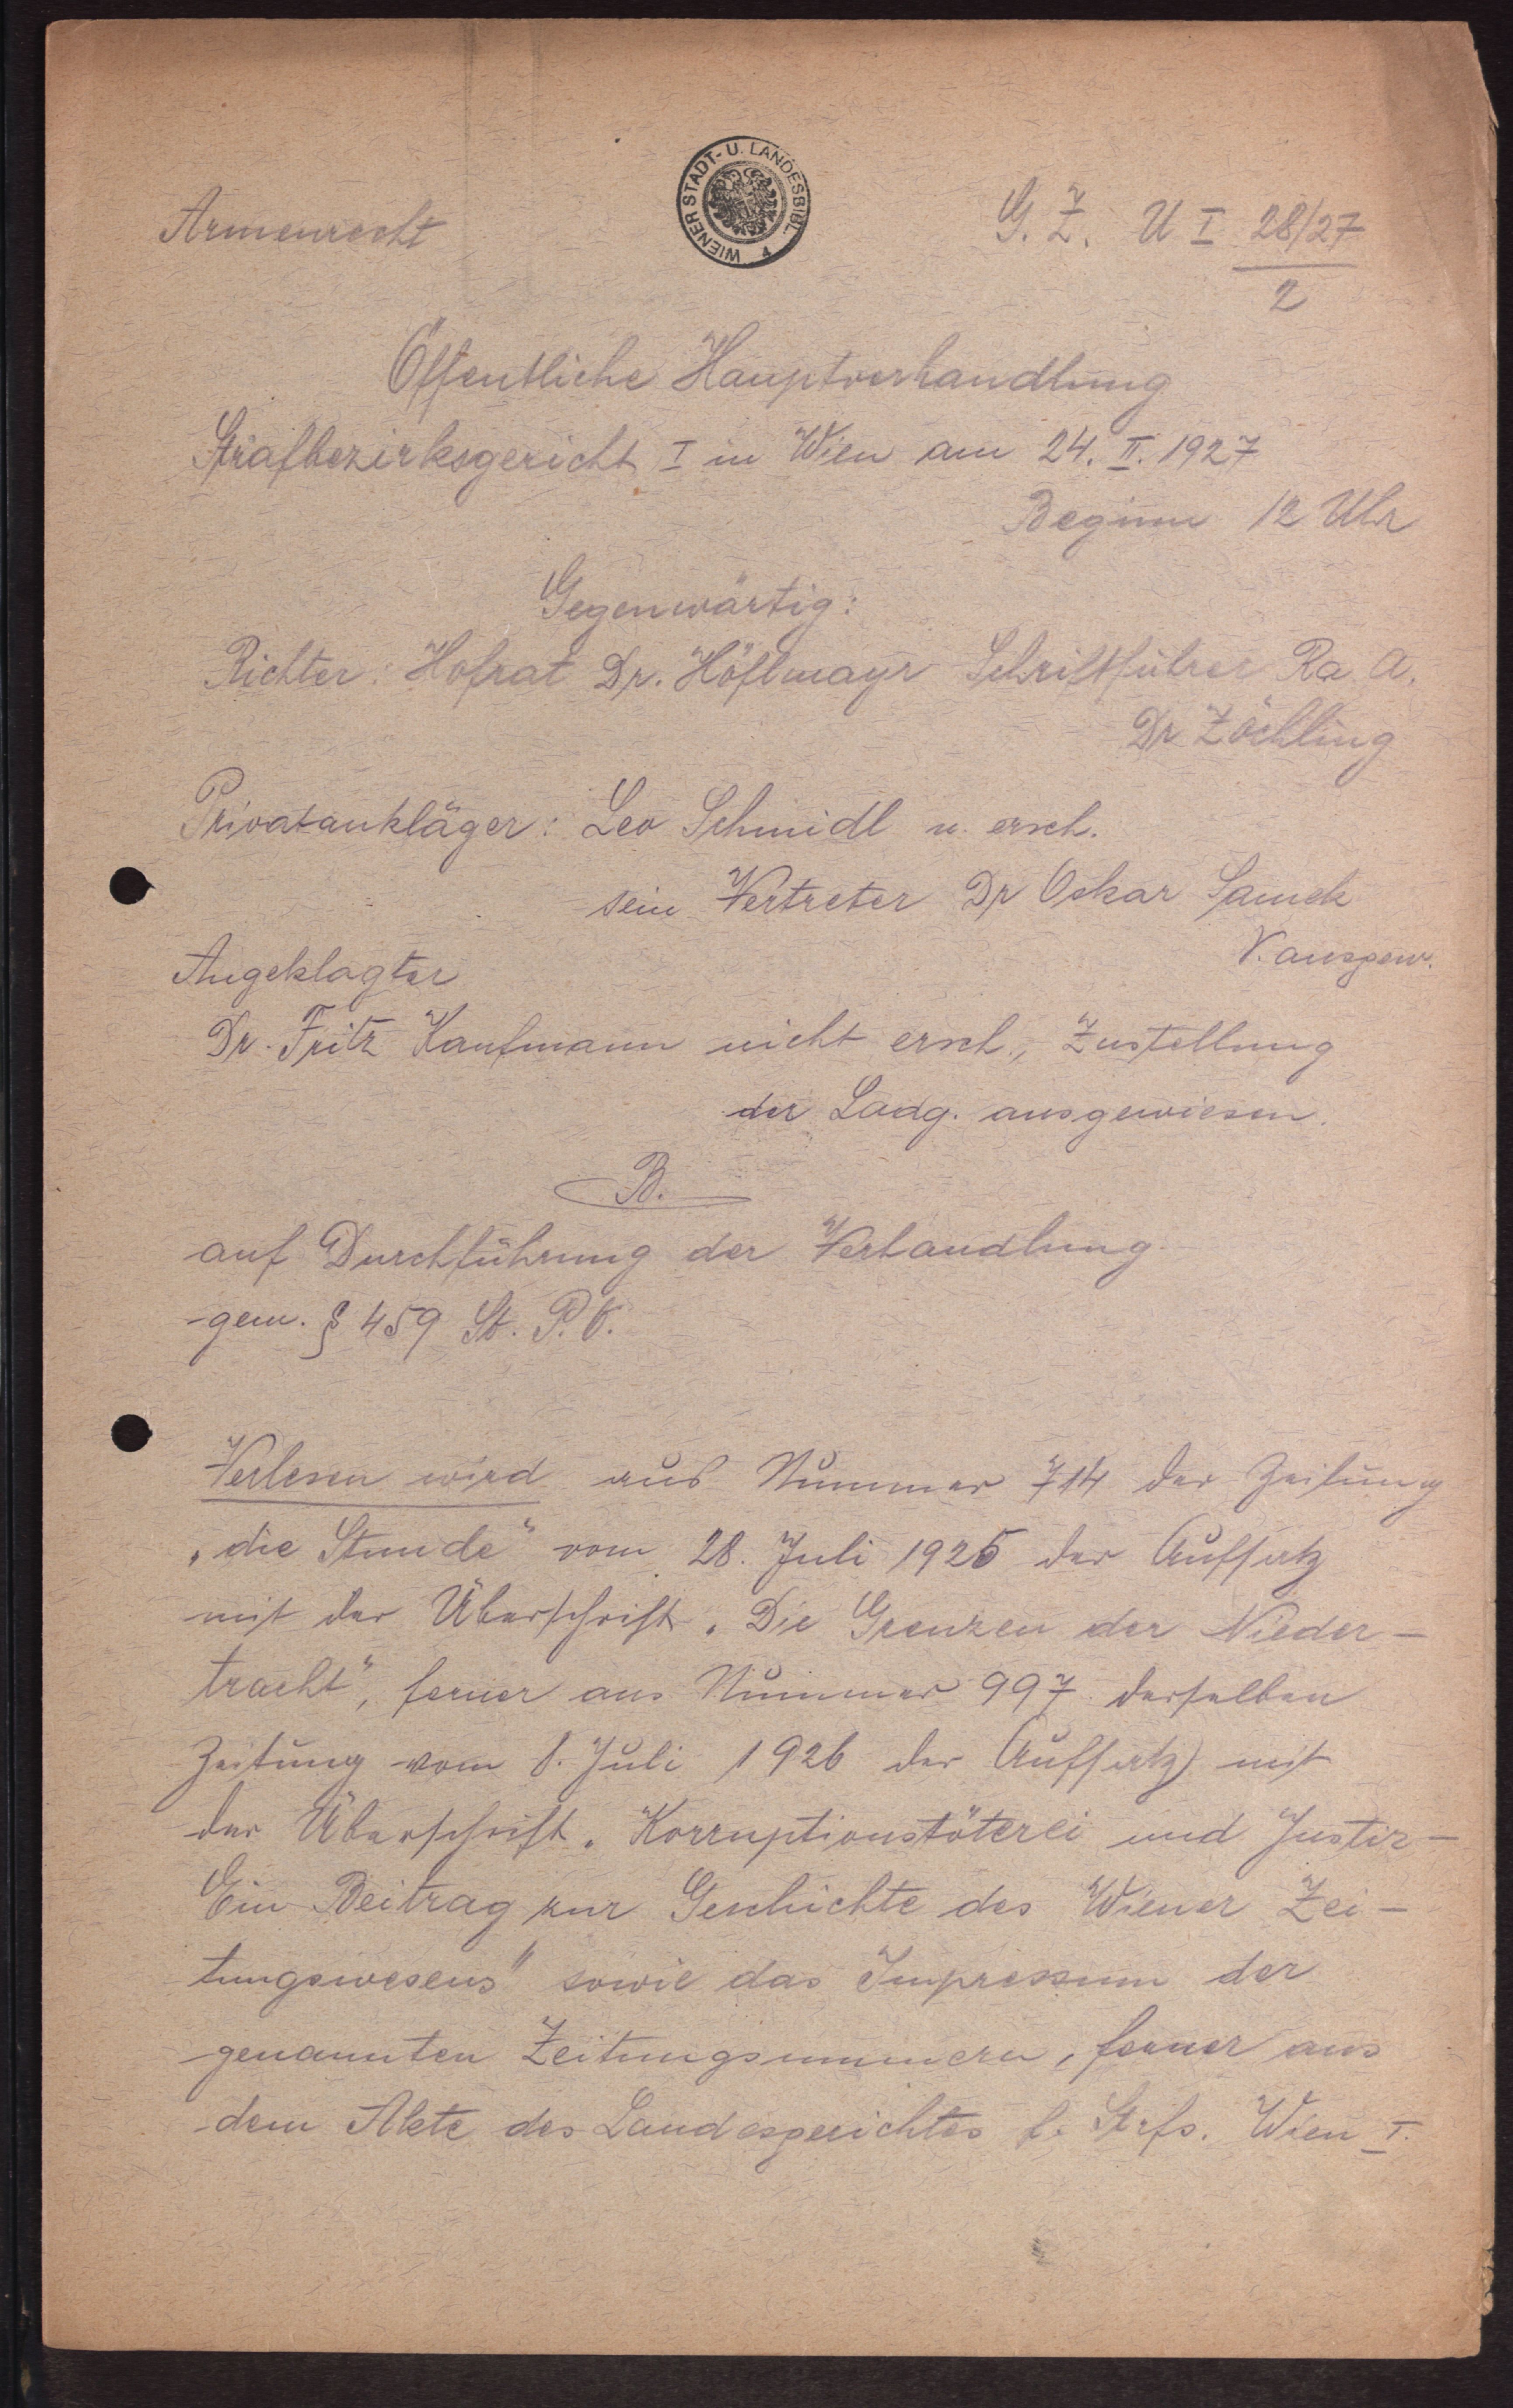 WIENER STADT- U. LANDESBIBL. 4
Armenrecht
G. Z. U I 28/27
2
Öffentliche Hauptverhandlung
Strafbezirksgericht I in Wien am 24. II. 1927
Beginn 12 Uhr
Gegenwärtig:
Richter: Hofrat Dr. Höflmayr Schriftführer Ra. A.
Dr Zöchling
Privatankläger: Leo Schmidl n. ersch.
sein Vertreter Dr Oskar Samek
V. ausgew.
Angeklagter
Dr. Fritz Kaufmann nicht ersch., Zustellung
der Ladg. ausgewiesen.
B.
auf Durchführung der Verhandlung
gem. § 459 St. P. O.
Verlesen wird aus Nummer 714 der Zeitung
„die Stunde" vom 28. Juli 1925 der Aufsatz
mit der Überschrift „Die Grenzen der Nieder-
tracht", ferner aus Nummer 997 derselben
Zeitung vom 8. Juli 1926 der Aufsatz mit
der Überschrift „Korruptionstöterei und Justiz -
Ein Beitrag zur Geschichte des Wiener Zei-
tungswesens" sowie das Impressum der
genannten Zeitungsnummern, ferner aus
dem Akte des Landesgerichtes f. Strfs. Wien I.